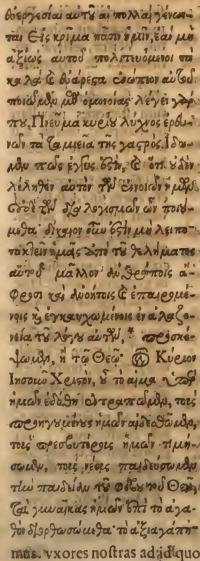 ἐυεργεσίαι αὐτȣ͂ αἱ πολλαὶ γένων-
ται εἰς κρίμα πᾶσιν ἡμῖν, ἐὰν μὴ
ἀξίως αὐτοῦ πολιτευόμενοι τὰ
καλὰ & ἐυάρεςα ἐνώπιον αὐτοῦ
ποιῶμεν μεθ' ὁμονοίας λέγει γάρ
πȣ, Πνεῦμα κυρίȣ λύχνος ἐρευ-
νῶν τὰ ταμιεῖα τῆς γαςρός. Ἴδω-
μεν πῶς ἐγγύς ἐςιν, & ὅτι ȣ̓δὲν
λέληθεν αὐτὸν τῶν ἐννοιῶν ἡμῶν
ȣ̓δὲ τῶν διαλογισμῶν ὧν ποιȣ́-
μεθα· δίκαιον ȣ̓͂ν ἐςὶν μὴ λειπο-
τακτεῖν ἡμᾶς ἀπὸ τȣ͂ θελήματος
αὐτοῦ· μᾶλλον ἀνθρώποις ἄ-
φροσι καὶ ἀνοήτοις & ἐπαιρομέ-
νοις κ̀ ἐγκαυχωμένοις ἐν ἀλαζο-
νείᾳ τȣ͂ λόγȣ αὐτῶν, * προσκό-
ψωμεν, ἢ τῷ Θεῷ· Κύριον
Ἰησοῦν Χριςὸν, ȣ̔͂ τὸ αἷμα ὑπὲρ
ἡμῶν ἐδόθη ἐντραπῶμεν, τοὺς
προηγȣμένȣς ἡμῶν αἰδεσθῶμεν,
τοὺς πρεσβυτέρȣς ἡμῶν τιμή-
σωμεν, τοὺς νέȣς παιδεύσωμεν
τὴν παιδείαν τȣ͂ φόβȣ τοῦ Θεȣ͂,
τὰς γυναῖκας ἡμῶν ἐπὶ τὸ ἀγα-
θὸν διορθωσώμεθα· τὸ ἀξιαγάπη-
mus. vxores noſtras ad id quo